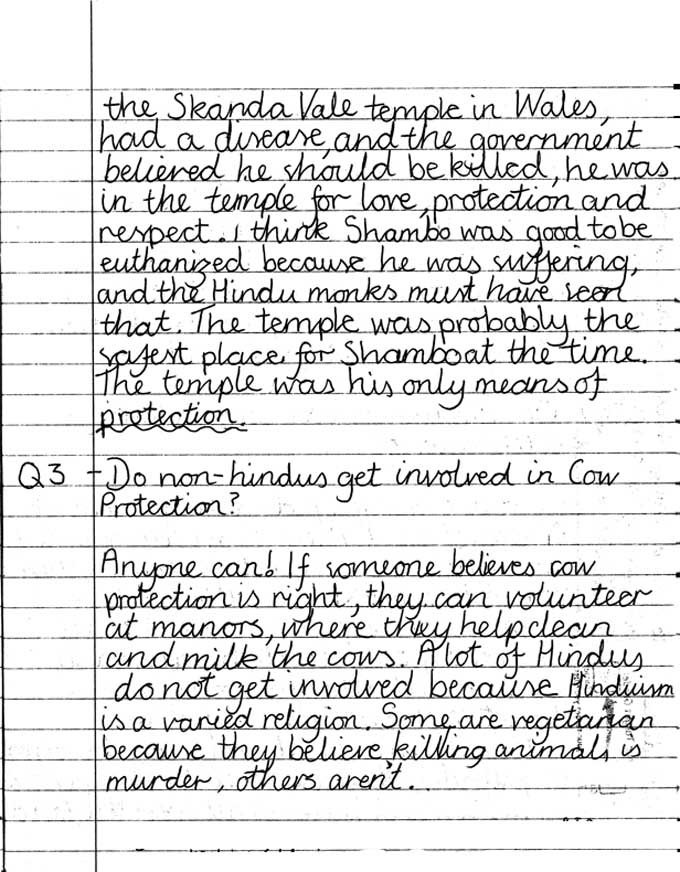 the Skanda Vale temple in Wales,
had a disease, and the government
believed he should be killed, he was
in the temple for love, protection and
respect. I think Shambo was good to be
euthanized because he was suffering,
and the Hindu monks must have seen
that. The temple was probably the
safest place for Shambo at the time.
The temple was his only means of
protection.
Q3 - Do non-hindus get involved in Cow
Protection?
Anyone can! If someone believes cow
protection is right, they can volunteer
at manors, where they help clean
and milk the cows. A lot of Hindus
do not get involved because Hinduism
is a varied religion. Some are vegetarian
because they believe killing animals is
murder, others aren't.